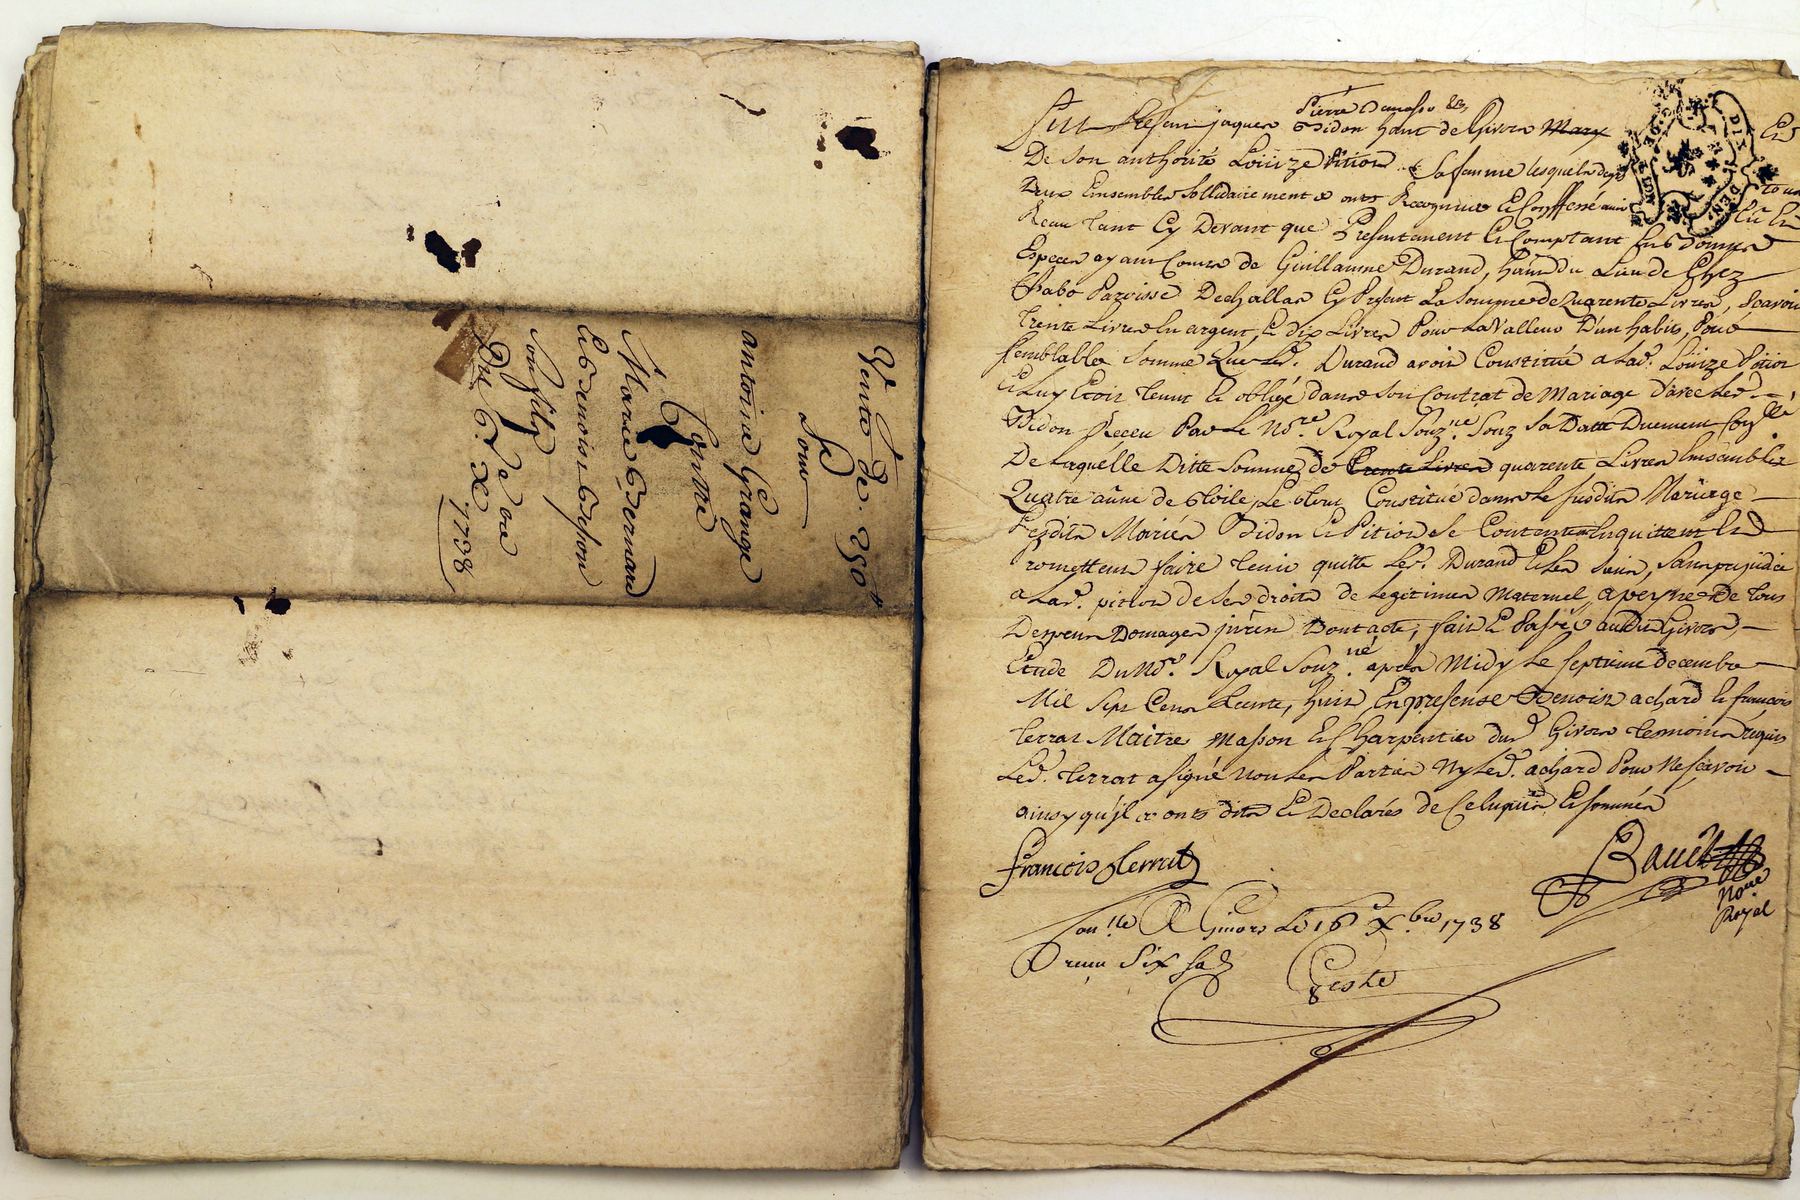 Vente de. 250#
Pour
antoine Grange
Contre
Marie Bernard
Et Benoist
son fils
Du 6e Xbre
1738
Pierre
jaques Bidon hant de Givors
De son authorité Loüize Pitiod sa femme lesquels
Deux Ensembles Sollidairement ont Recognu et Confessé avoir
Receu tant Cy Devant que Presentement et Comptant en bonnes
Especes ayant Cours de Guillaume Durand, hant du Lieu de Chez
Chabo Paroisse Dechallas Cy Present La Somme de Quarente Livres, Scavoir
trente Livres en argent, et dix Livres Pour La Valleur D'un habits, Pour
semblable Somme Que Led. Durand avoit Constitué a Lad. Loüize Pitiod
Et Luy Etoit tenut et obligé dans son Contrat de Mariage D'avec Led
Bidon Receu Par Le Nore Royal Souzne Souz Sa Datte Duement
De Laquelle Ditte Somme de quarente Livres Ensembles
Quatre aûne de toile, Constitué dans le susdit Mariage
Lesdits Mariés Bidon et Pitiod se Contentent En quittent et
Promettent faire tenir quitte Led. Durand et les siens, Sans prejudice
a Lad. pitiod de ses droits de Legitimes Maternel, a peyne de tous
Despens Domages Dont acte, fait et Passé audit Givors,
Etude Du Nore Royal Souzné après Midy Le Septieme decembre
Mil Sept Cens trente, huit En presense Benoist achard et françois
terrat Maitre Masson et Charpentier dud Givors temoins requis
Led. terrat a signé non les Parties Ny Led. achard Pour Ne Scavoir
ainsy qu'jl ont dits et Declarés de Ce enquis et sommés
François terrat
Nore
Royal
Conlle A Givors Le 16e Xbre 1738
Receu Six sols